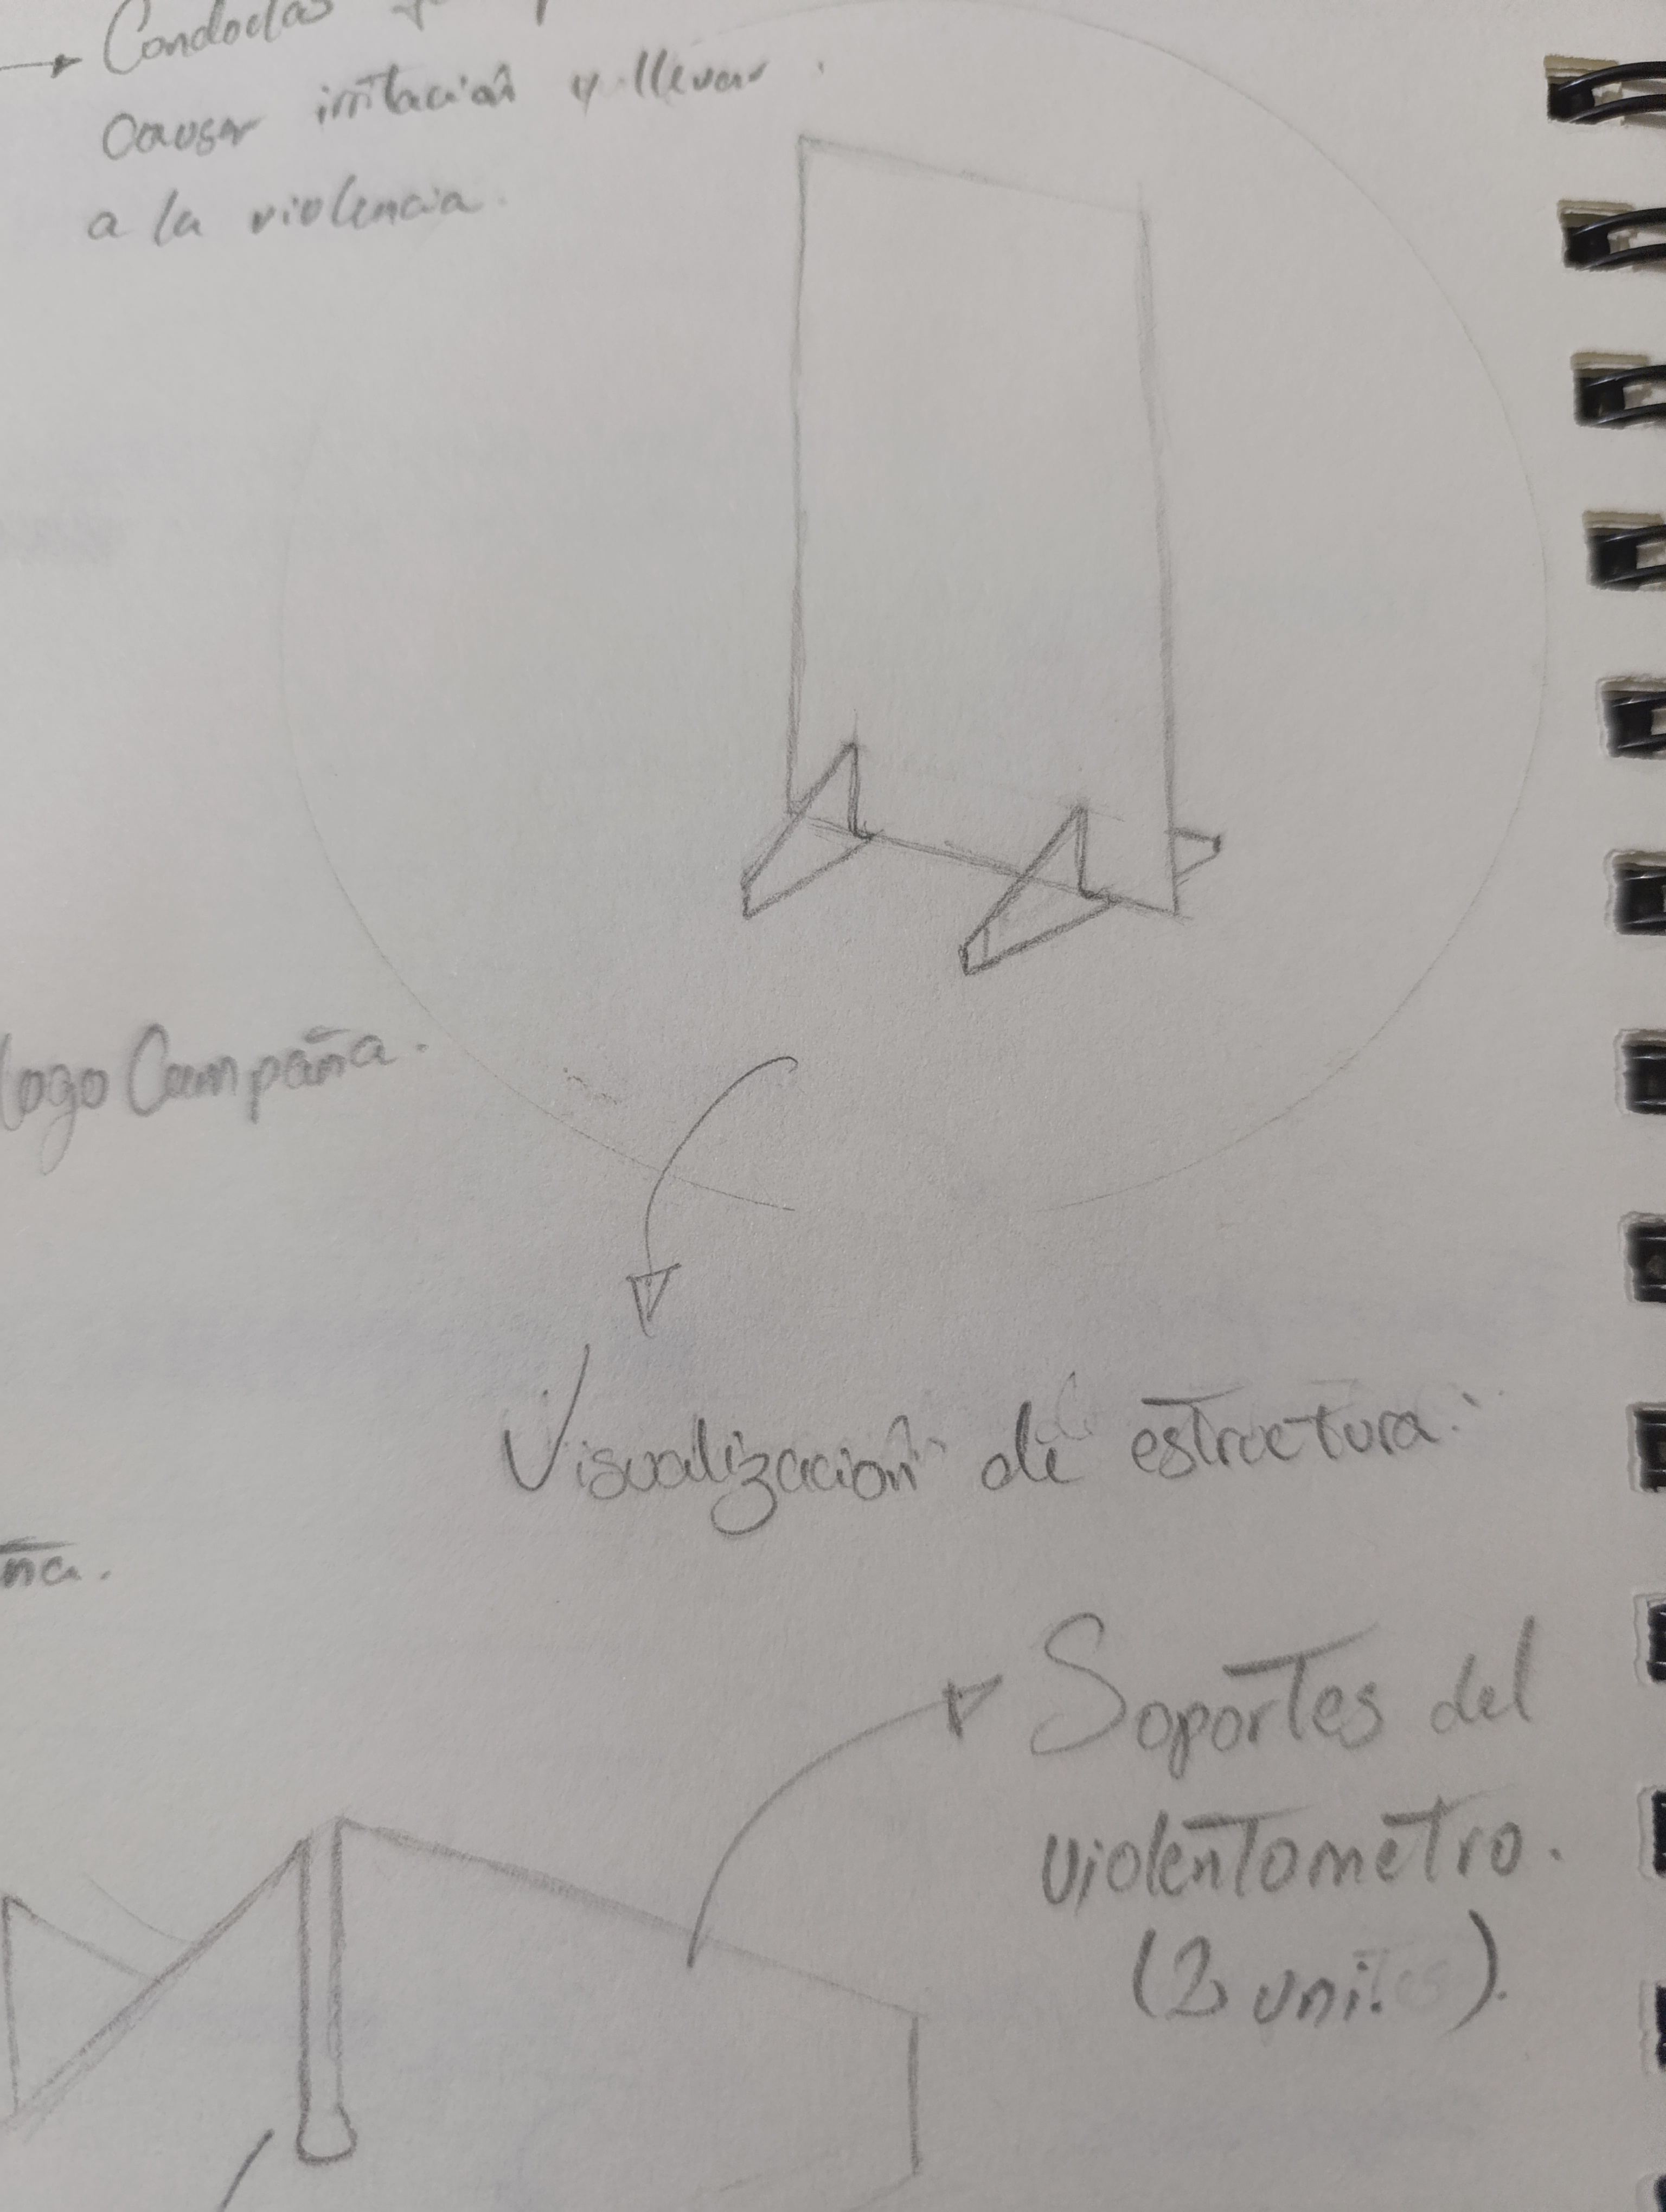 Conductas
causar irritación y llevar
a la violencia.
logo Campaña.
Visualización de estructura.
ña.
Soportes del
violentometro.
(2 uni. ).